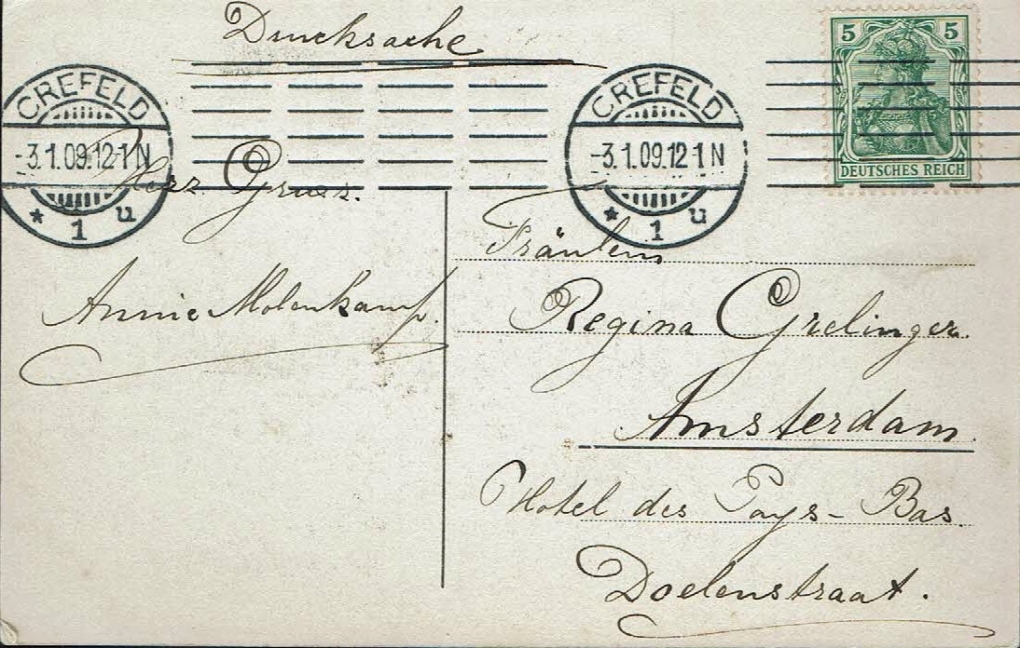 Drucksache
CREFELD
-3.1.09.12-1 N
* 1 u
CREFELD
-3.1.09.12-1 N
* 1 u
5 5
DEUTSCHES REICH
Herz Gruss.
Annie Molenkamp.
Fräulein
Regina Grelinger.
Amsterdam.
Hotel des Pays-Bas.
Doelenstraat.